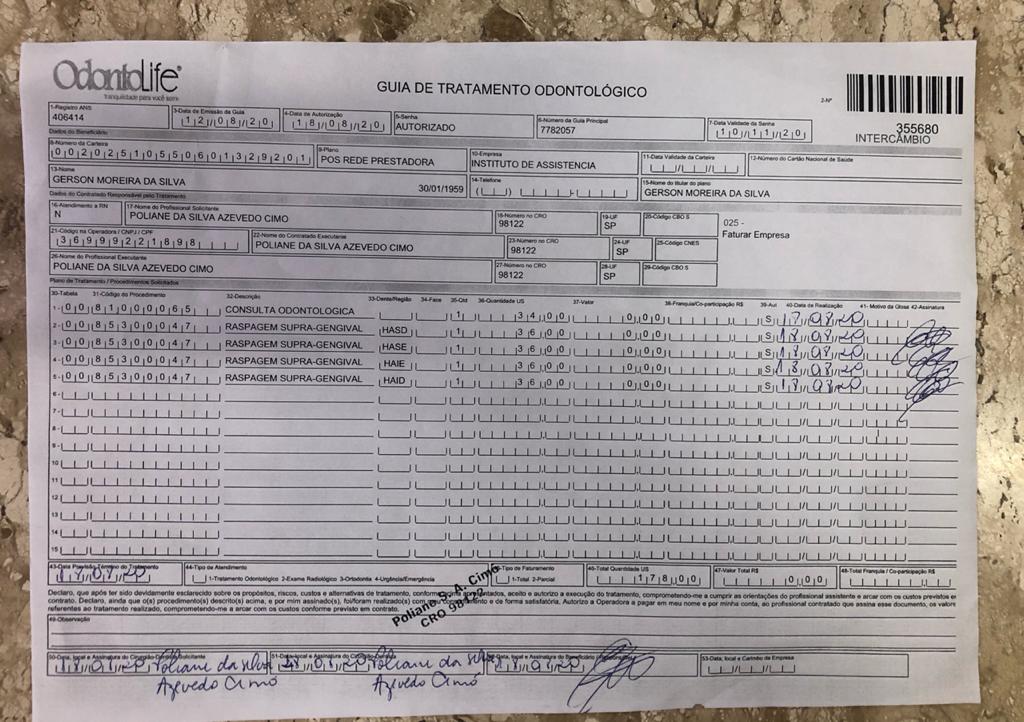 OdontoLife®
tranquilidade para você sorrir
GUIA DE TRATAMENTO ODONTOLÓGICO
2-Nº
355680
INTERCÂMBIO
1-Registro ANS
406414
3-Data de Emissão da Guia
12/08/20
4-Data de Autorização
18/08/20
5-Senha
AUTORIZADO
6-Número da Guia Principal
7782057
7-Data Validade da Senha
10/11/20
Dados do Beneficiário
8-Número da Carteira
00202510550601329201
9-Plano
POS REDE PRESTADORA
10-Empresa
INSTITUTO DE ASSISTENCIA
11-Data Validade da Carteira
12-Número do Cartão Nacional de Saúde
13-Nome
GERSON MOREIRA DA SILVA
30/01/1959
14-Telefone
15-Nome do titular do plano
GERSON MOREIRA DA SILVA
Dados do Contratado Responsável pelo Tratamento
16-Atendimento a RN
N
17-Nome do Profissional Solicitante
POLIANE DA SILVA AZEVEDO CIMO
18-Número no CRO
98122
19-UF
SP
20-Código CBO S
025 -
Faturar Empresa
21-Código na Operadora / CNPJ / CPF
36999221898
22-Nome do Contratado Executante
POLIANE DA SILVA AZEVEDO CIMO
23-Número no CRO
98122
24-UF
SP
25-Código CNES
26-Nome do Profissional Executante
POLIANE DA SILVA AZEVEDO CIMO
27-Número no CRO
98122
28-UF
SP
29-Código CBO S
Plano de Tratamento / Procedimentos Solicitados
30-Tabela 31-Código do Procedimento 32-Descrição 33-Dente/Região 34-Face 35-Qtd 36-Quantidade US 37-Valor 38-Franquia/Co-participação R$ 39-Aut 40-Data de Realização 41- Motivo da Glosa 42-Assinatura
1- 00 81000065 CONSULTA ODONTOLOGICA 1 34,00 0,00 S 17/08/20
2- 00 85300047 RASPAGEM SUPRA-GENGIVAL HASD 1 36,00 0,00 S 18/08/20
3- 00 85300047 RASPAGEM SUPRA-GENGIVAL HASE 1 36,00 0,00 S 18/08/20
4- 00 85300047 RASPAGEM SUPRA-GENGIVAL HAIE 1 36,00 0,00 S 18/08/20
5- 00 85300047 RASPAGEM SUPRA-GENGIVAL HAID 1 36,00 0,00 S 18/08/20
6-
7-
8-
9-
10
11
12
13
14
15
43-Data Previsão Término do Tratamento
18/08/20
44-Tipo de Atendimento
1-Tratamento Odontológico 2-Exame Radiológico 3-Ortodontia 4-Urgência/Emergência
45-Tipo de Faturamento
1-Total 2-Parcial
46-Total Quantidade US
178,00
47-Valor Total R$
0,00
48-Total Franquia / Co-participação R$
Declaro, que após ter sido devidamente esclarecido sobre os propósitos, riscos, custos e alternativas de tratamento, conforme acima apresentados, aceito e autorizo a execução do tratamento, comprometendo-me a cumprir as orientações do profissional assistente e arcar com os custos previstos em
contrato. Declaro, ainda que o(s) procedimento(s) descrito(s) acima, e por mim assinado(s), foi/foram realizado(s) com meu consentimento e de forma satisfatória. Autorizo a Operadora a pagar em meu nome e por minha conta, ao profissional contratado que assina esse documento, os valores
referentes ao tratamento realizado, comprometendo-me a arcar com os custos conforme previsto em contrato.
Poliane S. A. Cimo
CRO 98122
49-Observação
50-Data, local e Assinatura do Cirurgião-Dentista Solicitante
18/08/20 Poliane da silva
Azevedo Cimo
51-Data, local e Assinatura do Cirurgião-Dentista
18/08/20 Poliane da silva
Azevedo Cimo
52-Data, local e Assinatura do Beneficiário
18/08/20
53-Data, local e Carimbo da Empresa